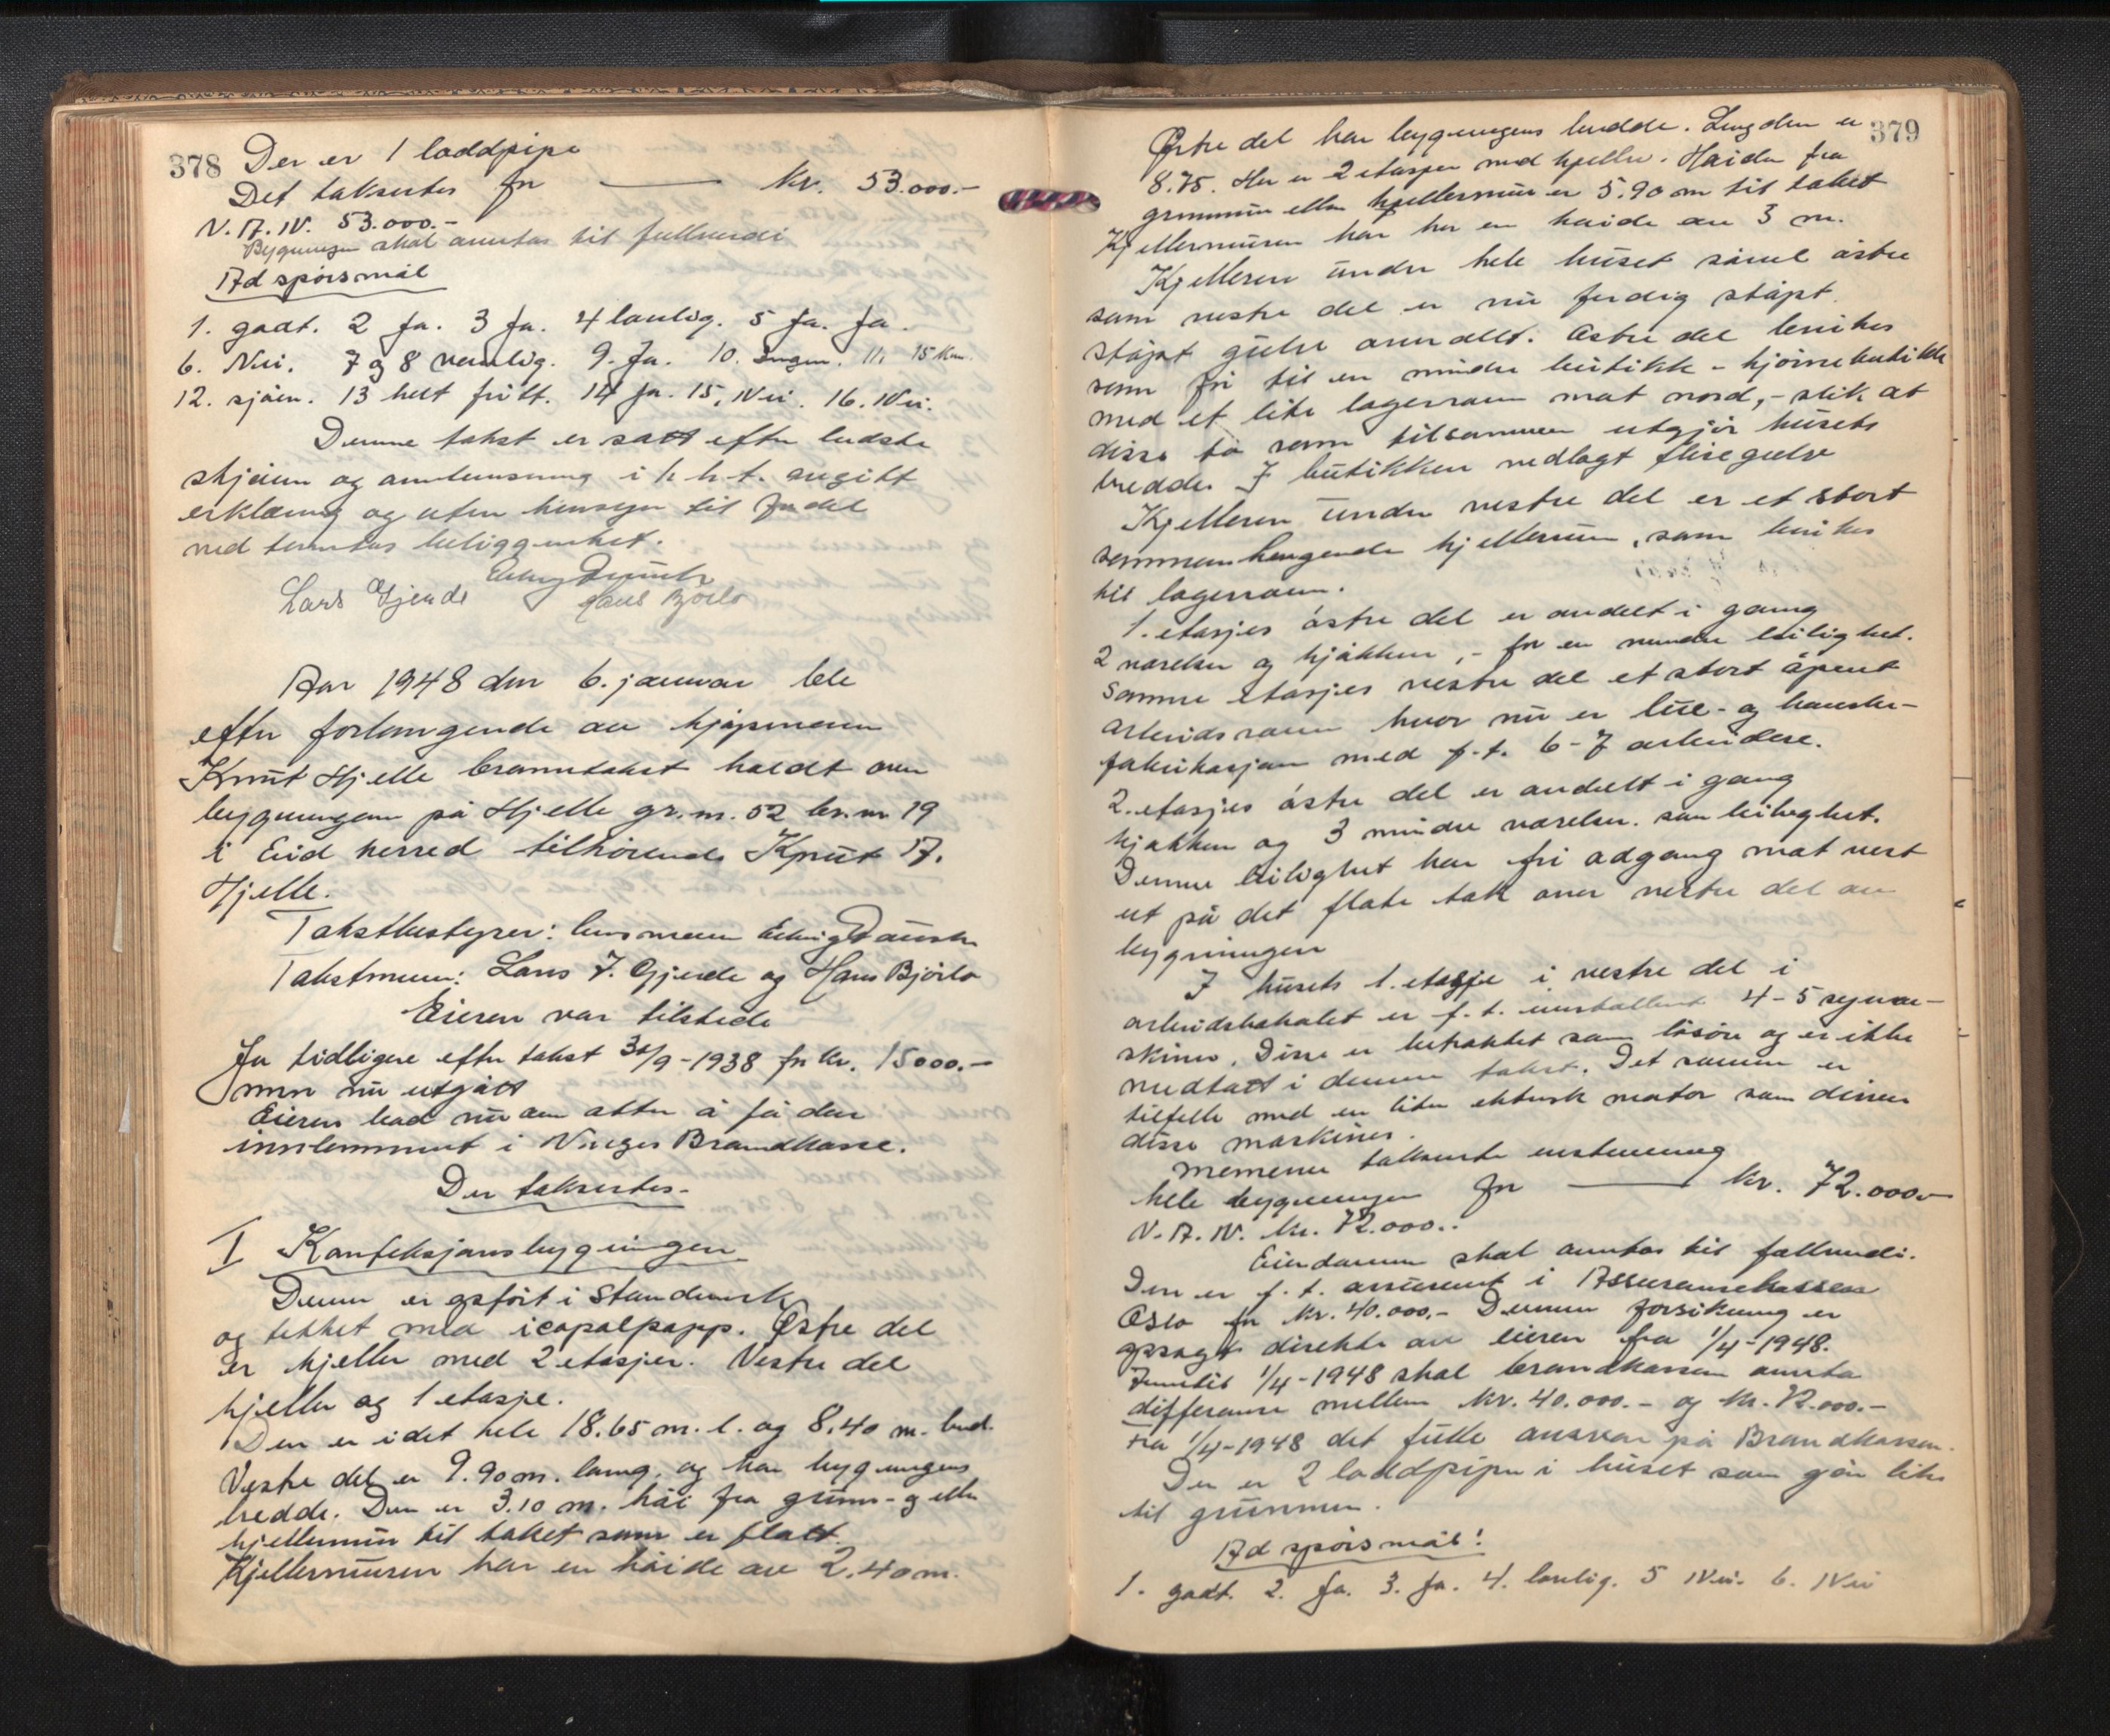 378
Der er 1 loddpipe
Det takseres for — kr. 53.000.-
V.A.N. 53.000.-
Bygningen skal anntas til fullverdi
Ad spörsmål
1. godt. 2 Ja. 3 Ja. 4 lovlig. 5 Ja. Ja.
6. Nei. 7 og 8 vanlig. 9. Ja. 10. Ingen. 11. 15 km.
12. sjöen. 13 helt fritt. 14 Ja. 15. Nei. 16. Nei.
Denne takst er satt efter bedste
skjönn og i h.h.t. avgitt
erklæring og uten hensyn til fordel
ved tomtens beliggenhet.
Lars Gjerde Hans Björlo
Aar 1948 den 6. januar ble
efter forlangende av kjöpmann
Knut Hjelle branntakst holdt over
bygningen på Hjelle gr.nr. 52 br.nr 19
i Eid herred tilhörende Knut A.
Hjelle.
Takstbestyrer: lensmann
Takstmenn: Lars J. Gjerde og Hans Björlo
Eieren var tilstede
Ja tidligere efter takst 30/9-1938 for kr. 15000.-
men nu utgått
Eieren bad nu om atter å få den
innlemmet i Norges Brandkasse.
Der takseres.
I Konfeksjonsbygningen
Denne er opfört i Standerverk
og tekket med icopalpapp. Östre del
er kjeller med 2 etasjer. Vestre del
kjeller og 1 etasje.
Den er i det hele 18.65 m. l. og 8.40 m. bred.
Vestre del er 9.90 m. lang, og har bygningens
bredde. Den er 3.10 m. höi fra grunn- og eller
kjellermur til taket som er flatt.
Kjellermuren har en höide av 2.40 m.
379
Östre del har bygningens bredde. Lengden er
8.75. Her er 2 etasjer med kjeller. Höiden fra
grunnmur eller kjellermur er 5.90 m til taket
Kjellermuren har her en höide av 3 m.
Kjelleren under hele huset såvel östre
som vestre del er nu ferdig stöpt.
Stöpt gulv overallt. Östre del benikes
som fri til en mindre butikk - hjörnebutikk
med et lite lagerrom mot nord, - slik at
disse to rom tilsammen utgjör husets
bredde. I butikken nedlagt flisegulv
Kjelleren under vestre del er et stort
sammenhengende kjellerrum, som benikes
til lagerrom.
1. etasjes östre del er avdelt i gang
2 værelser og kjökken, - for en mindre leilighet.
Samme etasjes vestre del et stort åpent
arbeidsrom hvor nu er lue- og hanske-
fabrikasjon med f.t. 6-7 arbeidere.
2. etasjes östre del er avdelt i gang
kjökken og 3 mindre værelser. som leilighet.
Denne leilighet har fri adgang mot vest
ut på det flate tak over vestre del av
bygningen
I husets 1. etasje i vestre del i
arbeidslokalet er f.t. installert 4-5 symas-
kiner. Disse er betraktet som lösöre og er ikke
medtatt i denne takst. Det samme er
tilfelle med en liten elektrisk motor som driver
disse maskiner.
Mennene takserte enstemmig
hele bygningen for — kr. 72.000.-
V.A.N. kr. 72.000.-
Eiendommen skal anntas til fullverdi.
Den er f.t. assurert i Assuransekassen
Oslo for kr. 40.000.- Denne forsikring er
opsagt direkte av eieren fra 1/4-1948.
Inntil 1/4-1948 skal brandkassen annta
differanse mellem kr. 40.000.- og kr. 72.000.-
Fra 1/4-1948 det fulle ansvar på Brandkassen.
Der er 2 loddpiper i huset som går like
til grunnen.
Ad spörsmål!
1. godt. 2. Ja. 3. Ja. 4. lovlig. 5 Nei. 6. Nei